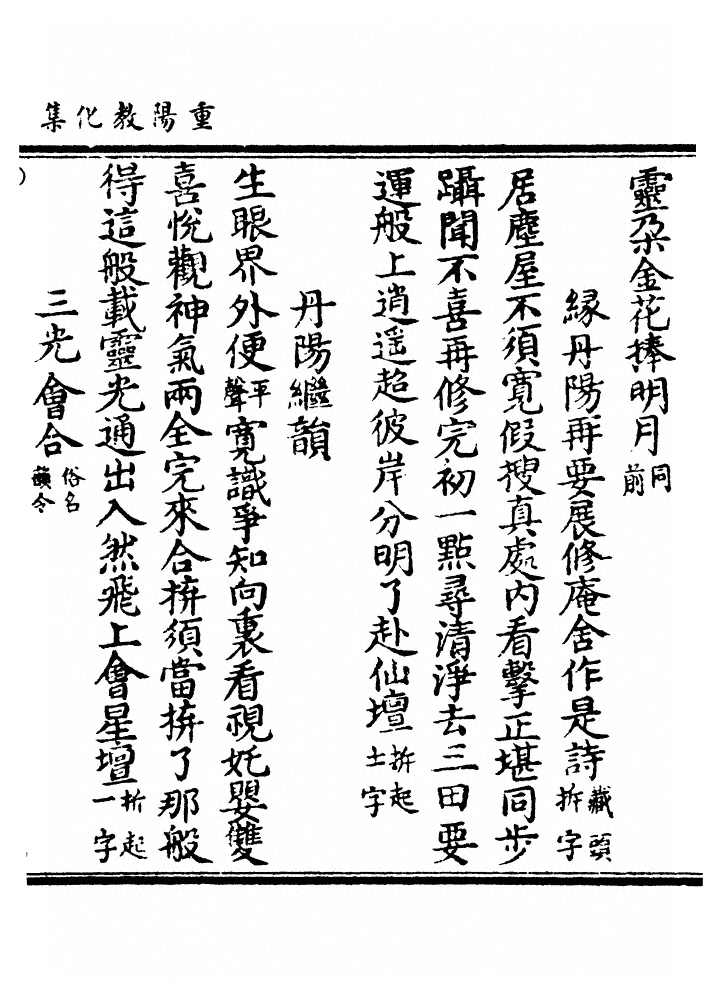 重陽教化集
靈朵金花捧明月同前
緣丹陽再要展修庵舍作是詩藏頭拆字
居塵屋不須寬假搜真處內看擊正堪同步
躡聞不喜再修完初一點尋清淨去三田要
運般上逍遥超彼岸分明了赴仙壇拆起土字
丹陽繼韻
生眼界外便平聲寬識爭知向裏看視奼嬰雙
喜悅觀神氣兩全完來合拚須當拚了那般
得這般載靈光通出入然飛上會星壇拆起一字
三光會合俗名蘸令